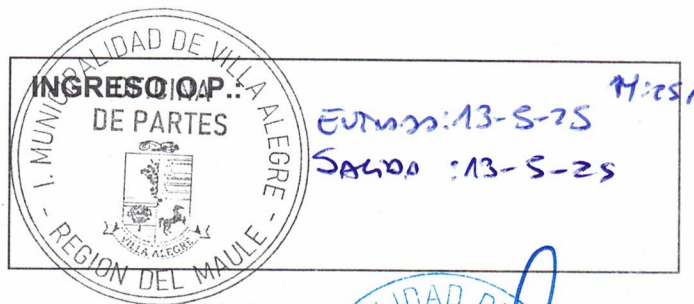 I. MUNICIPALIDAD DE VILLA ALEGRE
- REGION DEL MAULE -
OFICINA
DE PARTES
VILLA ALEGRE
INGRESO O.P.:
Entrada: 13-5-25
SALIDA : 13-5-25